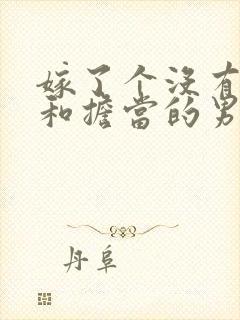 嫁了个没有
和擔當的男
丹阜